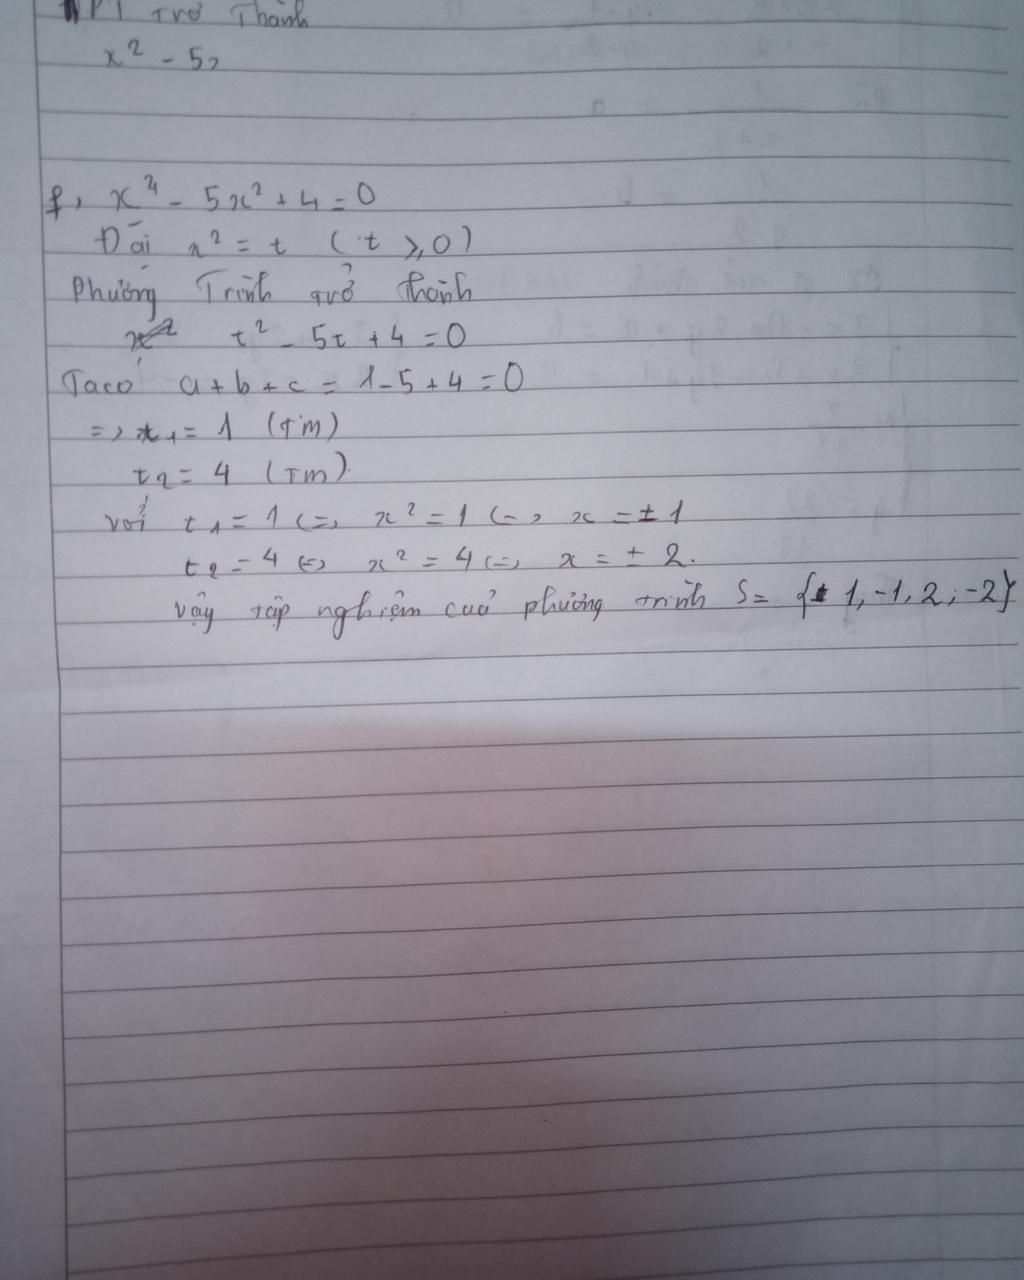 PT trở Thành
x² - 5
f, x⁴ - 5x² + 4 = 0
Đặt x² = t ( t ≥ 0 )
Phương Trình trở thành
t² - 5t + 4 = 0
Ta có a + b + c = 1 - 5 + 4 = 0
=> t₁ = 1 (Tm)
t₂ = 4 (Tm).
với t₁ = 1 <=> x² = 1 <=> x = ± 1
t₂ = 4 <=> x² = 4 <=> x = ± 2.
vậy tập nghiệm của phương trình S = { 1, -1, 2; -2}